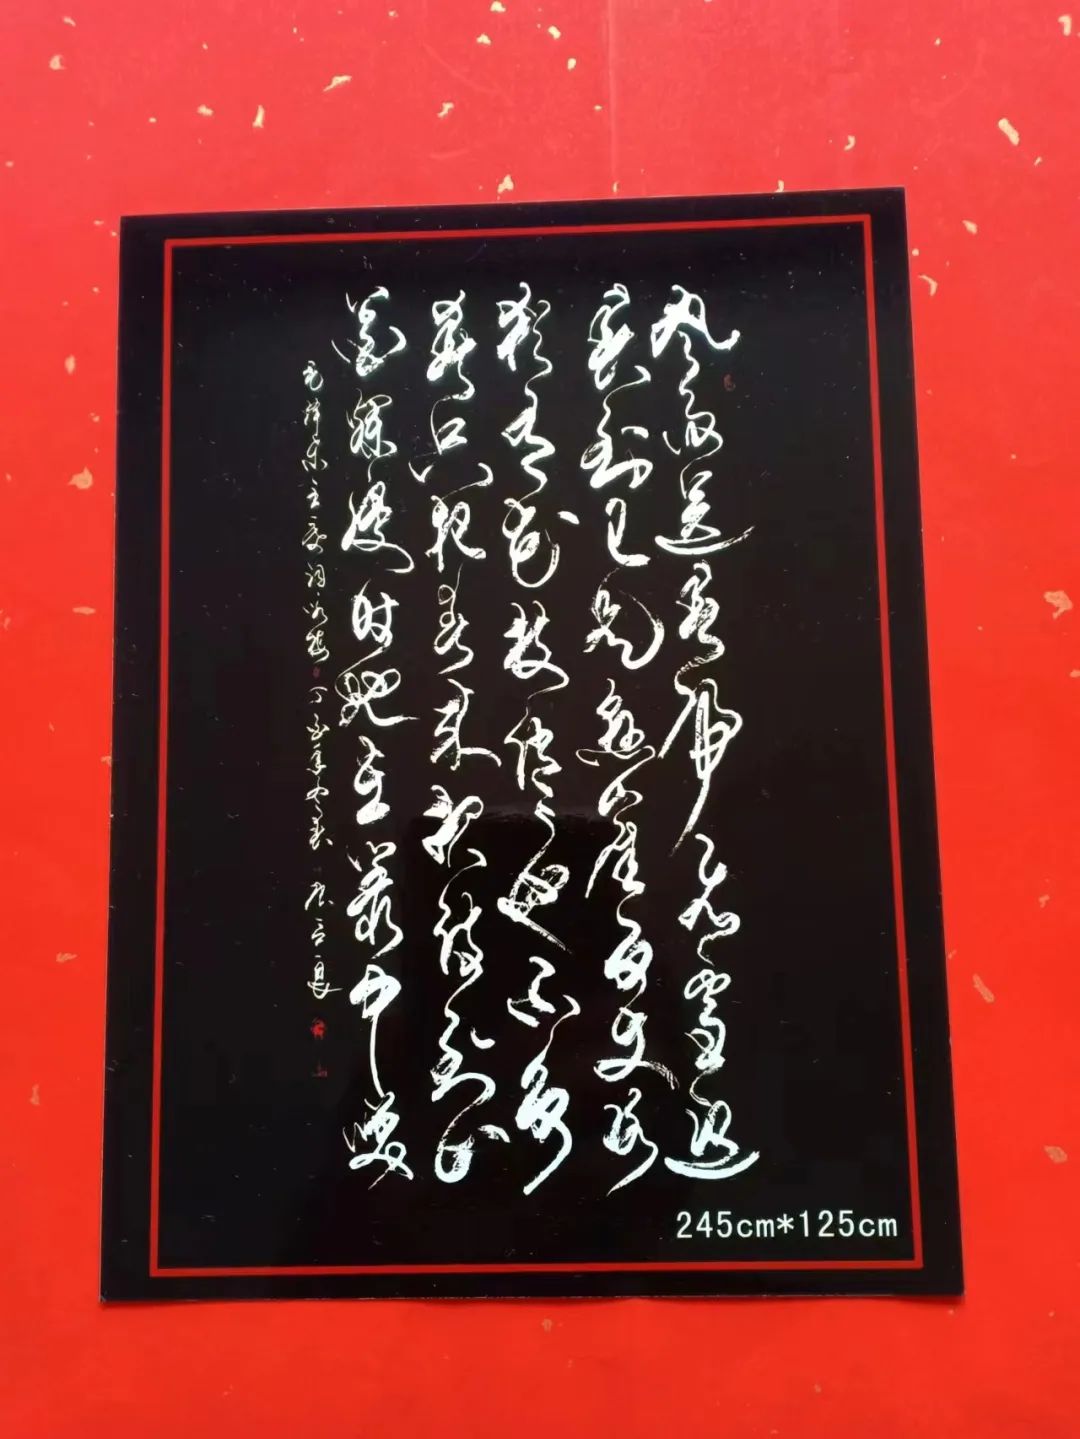 风雨送春归飞雪迎
春到已是悬崖百丈冰
犹有花枝俏俏也不争
春只把春来报待到山
花烂漫时她在丛中笑
毛泽东主席词咏梅 丁酉年
245cm*125cm